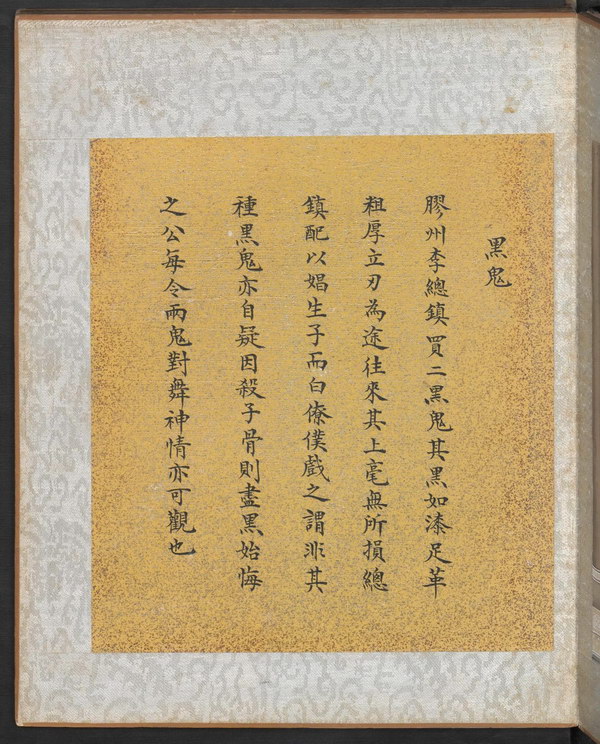 黑鬼
膠州李總鎮買二黑鬼其黑如漆足革
粗厚立刃為途往來其上毫無所損總
鎮配以娼生子而白僚僕戲之謂非其
種黑鬼亦自疑因殺子骨則盡黑始悔
之公每令兩鬼對舞神情亦可觀也